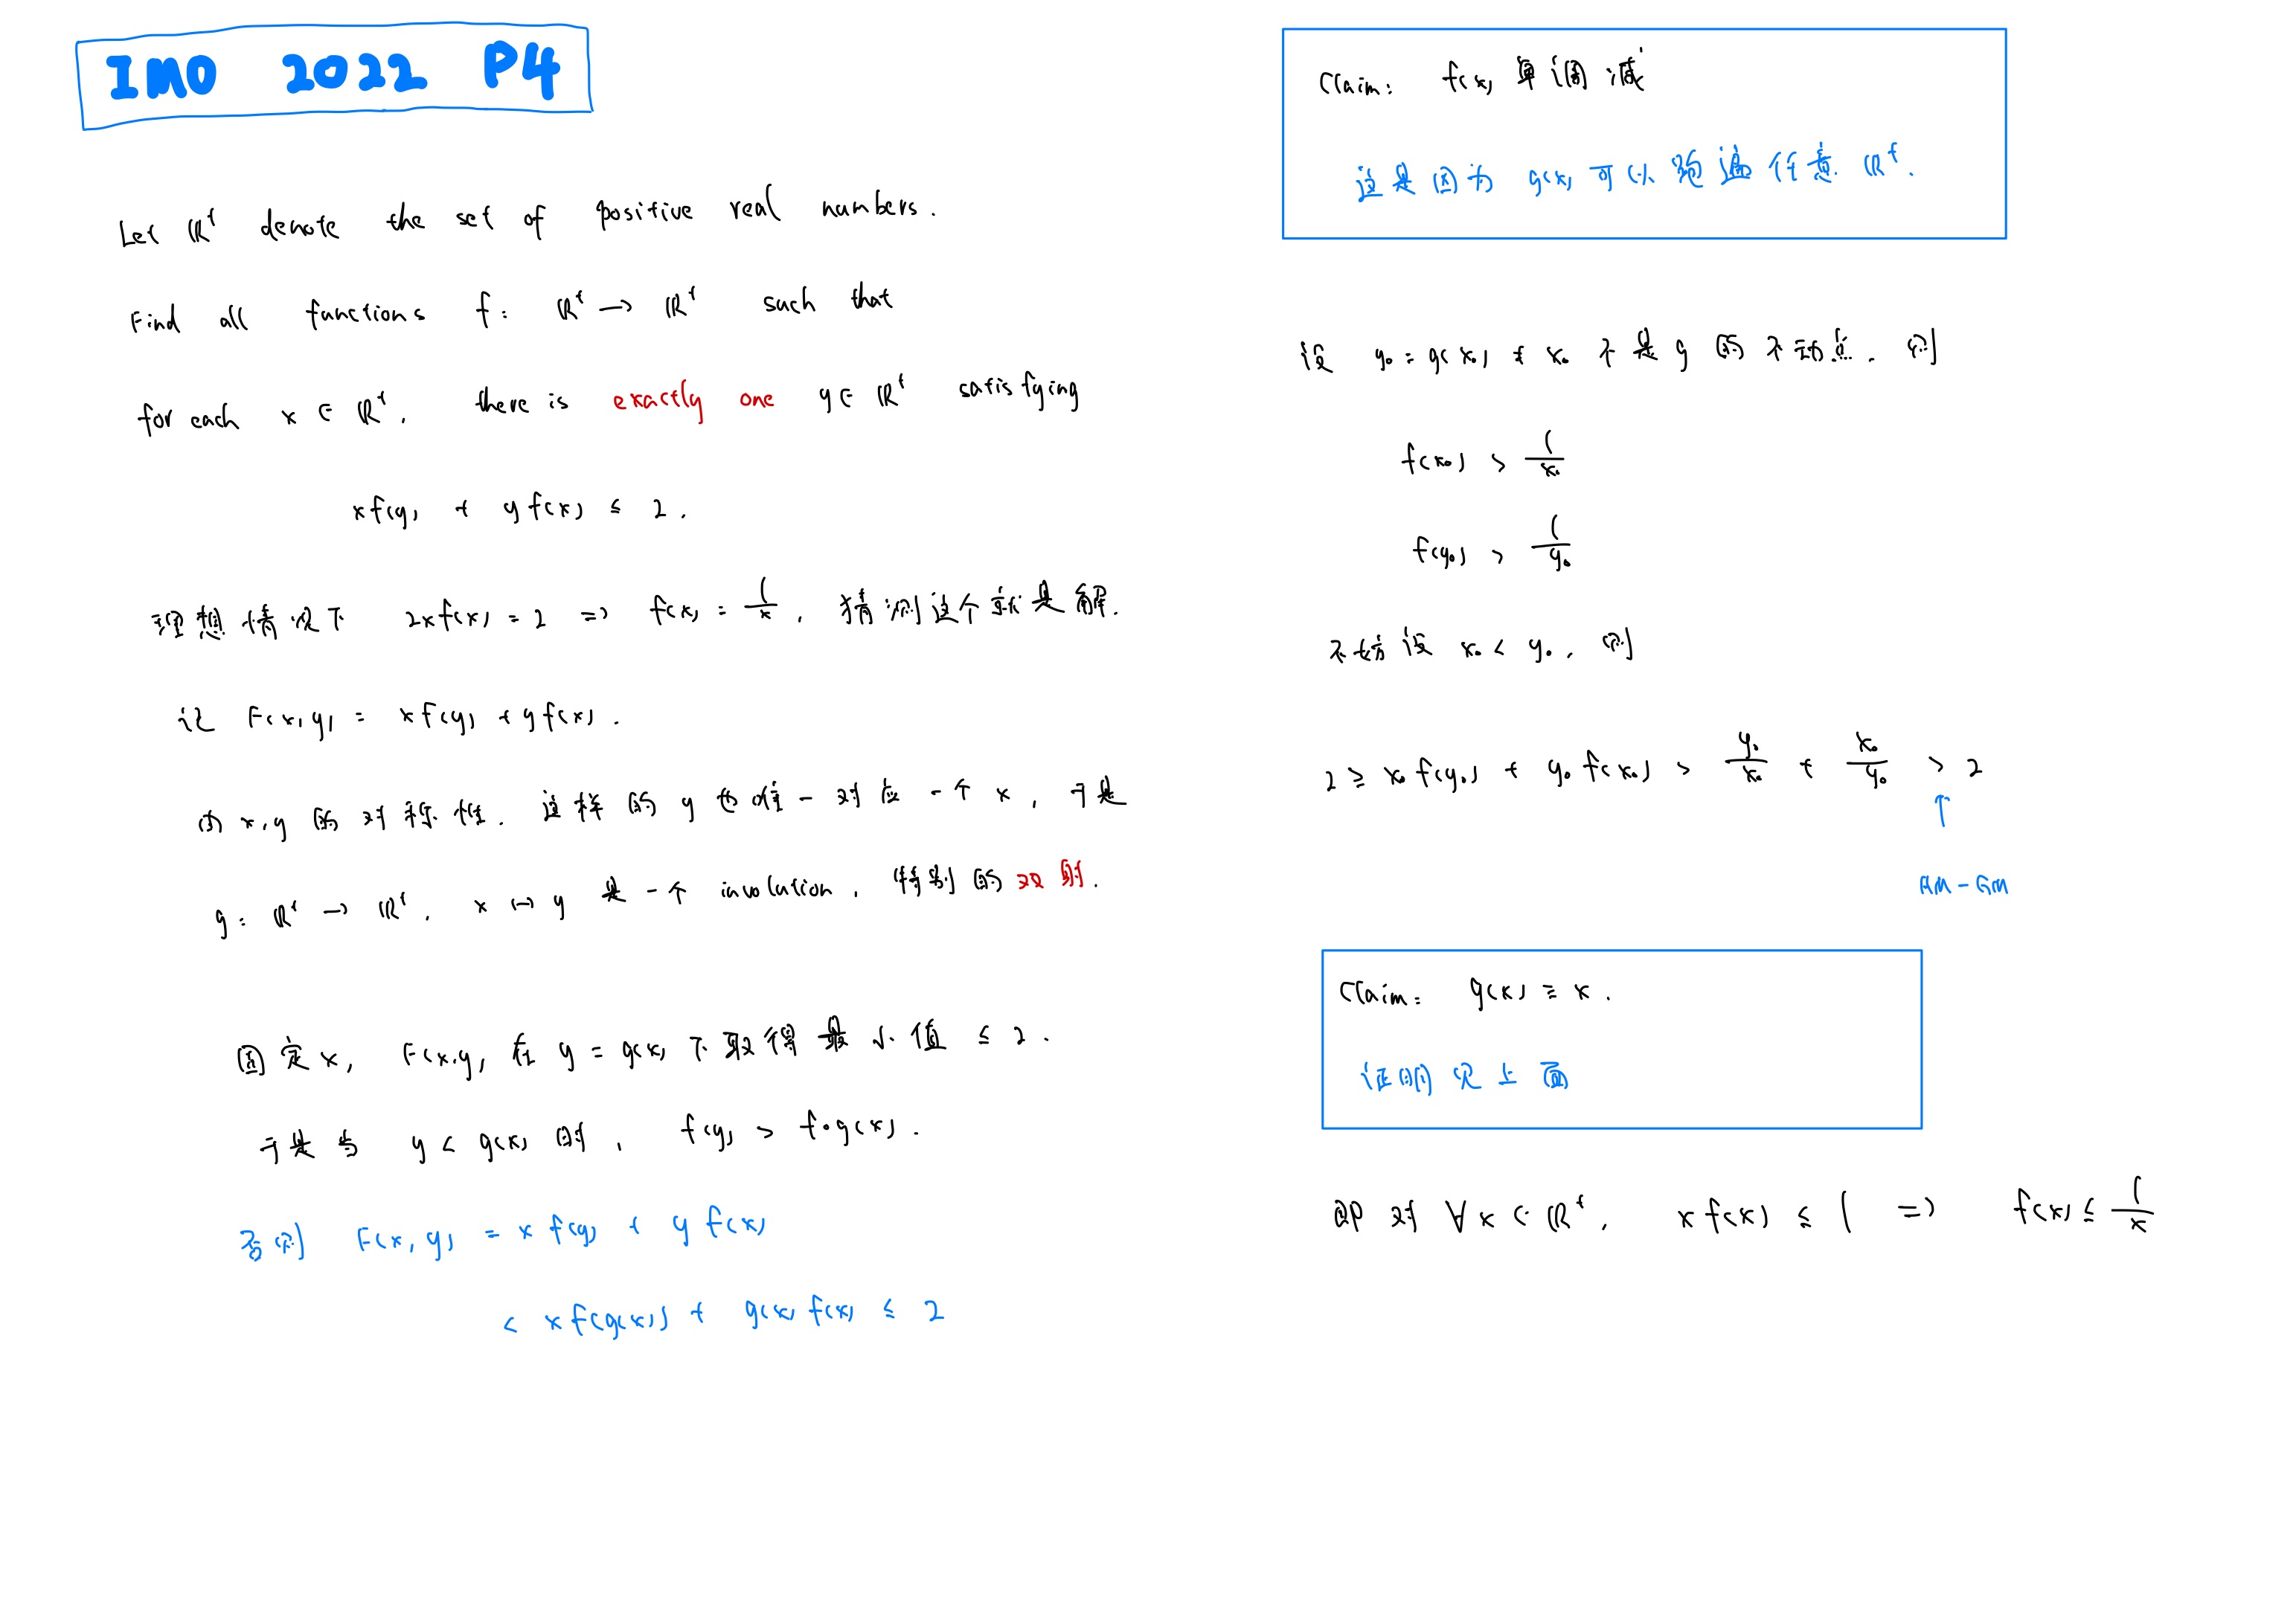 IMO 2022 P4
Let ℝ⁺ denote the set of positive real numbers.
Find all functions f: ℝ⁺ → ℝ⁺ such that
for each x ∈ ℝ⁺, there is exactly one y ∈ ℝ⁺ satisfying
x f(y) + y f(x) ≤ 2.
理想情况下 2x f(x) = 2 ⇒ f(x) = 1/x, 猜测这个就是解.
记 F(x,y) = x f(y) + y f(x).
由 x,y 的对称性. 这样的 y 也唯一对应一个 x, 于是
g: ℝ⁺ → ℝ⁺, x ↦ y 是一个 involution, 特别的双射.
固定 x, F(x,y) 在 y = g(x) 下取得最小值 ≤ 2.
于是当 y < g(x) 时, f(y) > f∘g(x).
否则 F(x,y) = x f(y) + y f(x)
< x f(g(x)) + g(x) f(x) ≤ 2
Claim: f(x) 单调减
这是因为 g(x) 可以跑遍任意 ℝ⁺.
设 y₀ = g(x₀) 且 x₀ 不是 g 的不动点. 则
f(x₀) > 1/x₀
f(y₀) > 1/y₀
不妨设 x₀ < y₀, 则
2 ≥ x₀ f(y₀) + y₀ f(x₀) > y₀/x₀ + x₀/y₀ > 2
↑
AM-GM
Claim: g(x) ≡ x.
证明见上面
即对 ∀x ∈ ℝ⁺, x f(x) ≤ 1 ⇒ f(x) ≤ 1/x